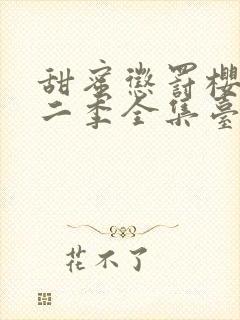 甜蜜懲罰櫻
二季全集臺
花不了